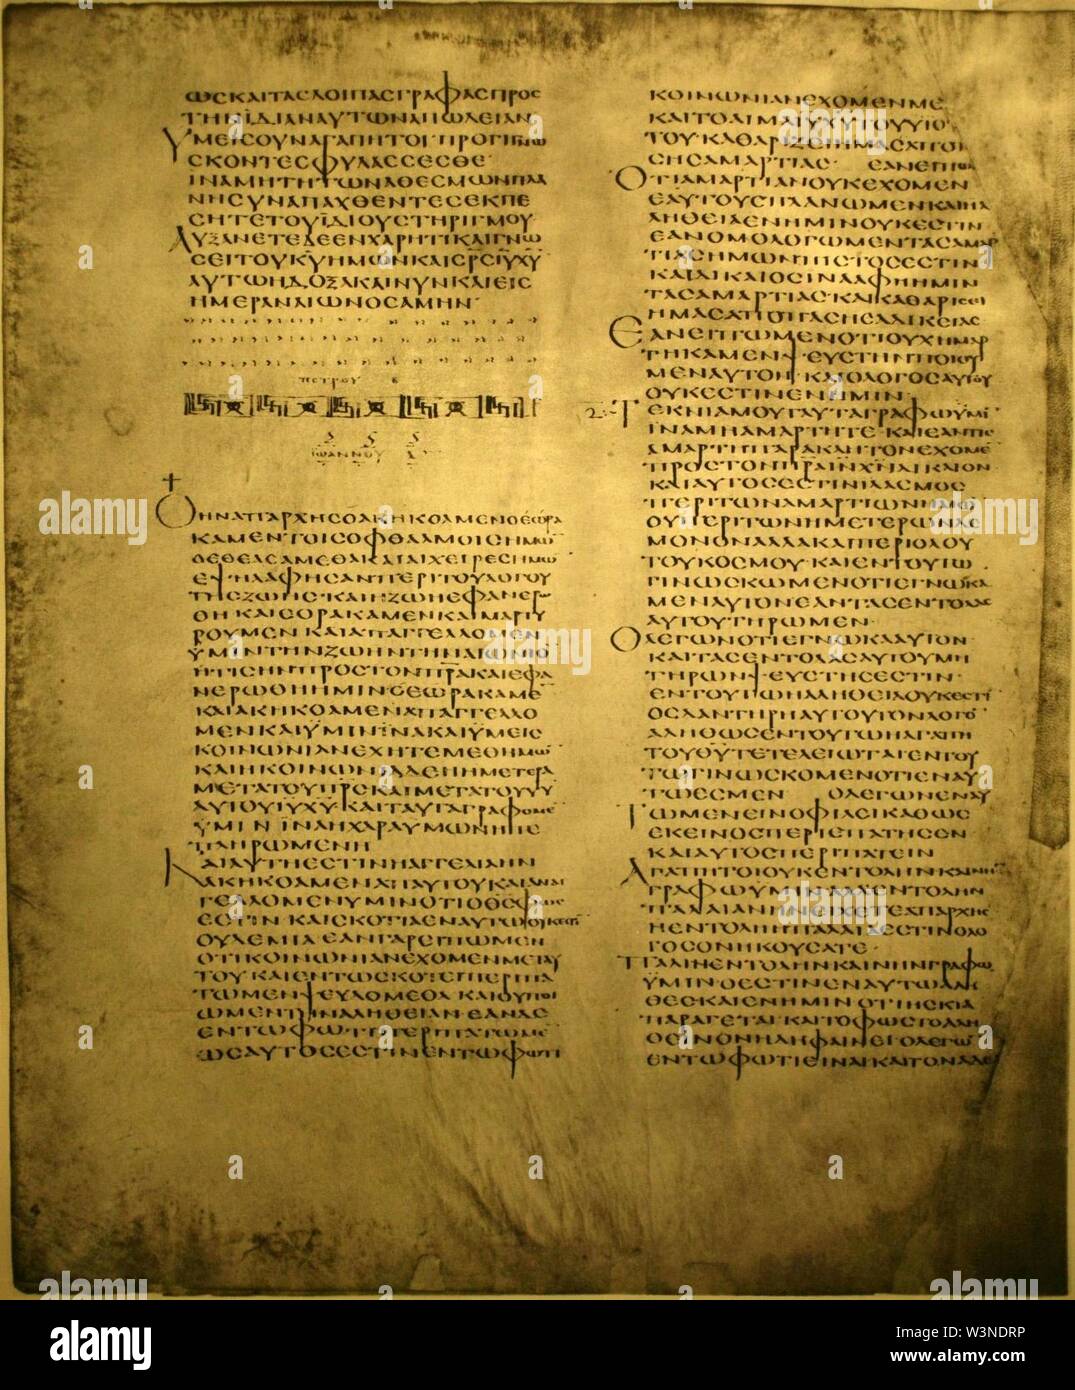 ωσκαιταλοιπασγραφασπροσ
τηνϊδιαναυτωναπωλειαν
Υμεισουναγαπητοιπρογινω
σκοντεσφυλασσεσθε
ιναμητητωναθεσμωνπλα
νησυναπαχθεντεσεκπε
σητετουϊδιουστηριγμου
Αυξανετεδεενχαριτικαιγνω
σειτουκυημωνκαισρσιυχυ
αυτωηδοξακαινυνκαιεισ
ημεραναιωνοσαμην
πετρου β
ιωαννου α
Οηναπαρχησοακηκοαμενοεωρα
καμεντοισοφθαλμοισημω
οεθεασαμεθακαιαιχειρεσημω
εψηλαφησανπεριτουλογου
τησζωησκαιηζωηεφανερω
θηκαιεορακαμενκαιμαρτυ
ρουμενκαιαπαγγελλομεν
ϋμιντηνζωηντηναιωνιο
ητισηνπροστονπρακαιεφα
νερωθηημινοεωρακαμε
καιακηκοαμεναπαγγελλο
μενκαιϋμινϊνακαιϋμεισ
κοινωνιανεχητεμεθημω
καιηκοινωνιαδεηημετερα
μετατουπρσκαιμετατουυυ
αυτουιυχυκαιταυταγραφομε
ϋμινϊναηχαραϋμωνηπε
πληρωμενη
Καιαυτηεστινηαγγελιαην
ακηκοαμεναπαυτουκαιαναγ
γελλομενυμινοτιοθσφωσ
εστινκαισκοτιαεναυτωουκεστι
ουδεμιαεανγαρειπωμεν
οτικοινωνιανεχομενμεταυ
τουκαιεντωσκοτειπεριπα
τωμενψευδομεθακαιουποι
ωμεντηναληθειανεανδε
εντωφωτιπεριπατωμε
ωσαυτοσεστινεντωφωτι
κοινωνιανεχομενμε
καιτοαιμαιυχυτουυιο
τουκαθαριζειημασαποπ
σησαμαρτιασ εανειπω
Οτιαμαρτιανουκεχομεν
εαυτουσπλανωμενκαιηα
ληθειαενημινουκεστιν
εανομολογωμεντασαμαρ
τιασημωνπιστοσεστιν
καιδικαιοσινααφηημιν
τασαμαρτιασκαικαθαρισει
ημασαποπασησαδικειασ
Εανειπωμενοτιουχημαρ
τηκαμενψευστηνποιου
μεναυτονκαιολογοσαυτου
ουκεστινενημιν
Τεκνιαμουταυταγραφωϋμι
ϊναμηαμαρτητεκαιεαντισ
αμαρτηπαρακλητονεχομε
προστονπραινχνδικαιον
καιαυτοσεστινϊλασμοσ
περιτωναμαρτιωνημω
ουπεριτωνημετερωνδε
μονοναλλακαιπεριολου
τουκοσμουκαιεντουτω
γινωσκωμενοτιεγνωκα
μεναυτονεαντασεντολασ
αυτουτηρωμεν
Ολεγωνοτιεγνωκααυτον
καιτασεντολασαυτουμη
τηρωνψευστησεστιν
εντουτωηαληθειαουκεστι
οσδαντηρηαυτουτονλογο
αληθωσεντουτωηαγαπη
τουθυτετελειωταιεντου
τωγινωσκομενοτιεναυ
τωεσμεν ολεγωνεναυ
Τωμενεινοφιλεικαθωσ
εκεινοσπεριεπατησεν
καιαυτοσπεριπατειν
Αγαπητοιουκεντοληνκαινη
γραφωϋμιναλλεντολην
παλαιανηνειχετεαπαρχησ
ηεντοληηπαλαιαεστινολο
γοσονηκουσατε
Παλινεντοληνκαινηνγραφω
ϋμινοεστιναληθεσεναυτω
θεσκαιενημινοτιησκια
παραγεταικαιτοφωστοαλη
θινονηδηφαινειολεγω
εντωφωτιειναικαιτοναδελ
alamy
Image ID: W3NDRP
www.alamy.com